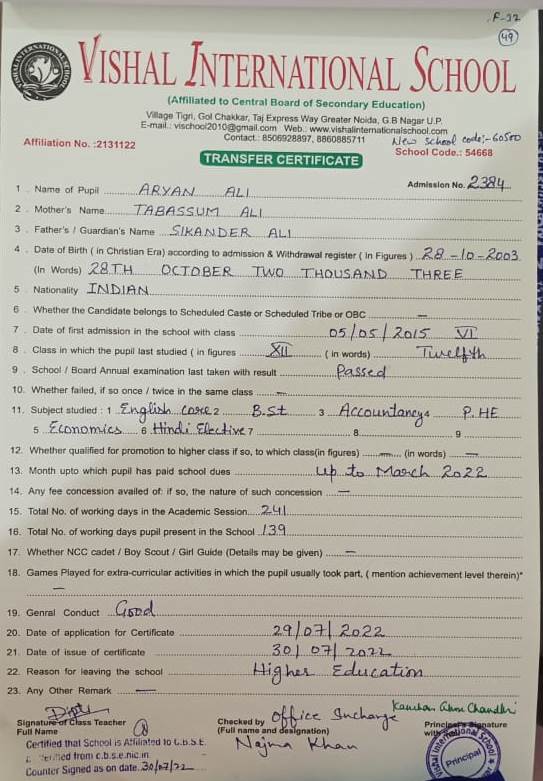 F-32
49
VISHAL INTERNATIONAL SCHOOL
(Affiliated to Central Board of Secondary Education)
Village Tigri, Gol Chakkar, Taj Express Way Greater Noida, G.B Nagar U.P.
E-mail.: vischool2010@gmail.com Web.: www.vishalinternationalschool.com
Contact.: 8506928897, 8860885711
New school code:- 60500
Affiliation No. :2131122
School Code.: 54668
TRANSFER CERTIFICATE
Admission No. 2384
1 . Name of Pupil ARYAN ALI
2 . Mother's Name TABASSUM ALI
3 . Father's / Guardian's Name SIKANDER ALI
4 . Date of Birth ( in Christian Era) according to admission & Withdrawal register ( In Figures ) 28-10-2003
(In Words) 28TH OCTOBER TWO THOUSAND THREE
5 . Nationality INDIAN
6 . Whether the Candidate belongs to Scheduled Caste or Scheduled Tribe or OBC —
7 . Date of first admission in the school with class 05/05/2015 VI
8 . Class in which the pupil last studied ( in figures XII ( in words) Twelfth
9 . School / Board Annual examination last taken with result Passed
10. Whether failed, if so once / twice in the same class —
11. Subject studied : 1 English core 2 B.St 3 Accountancy 4 P.HE
5 Economics 6 Hindi Elective 7 8 9
12. Whether qualified for promotion to higher class if so, to which class(in figures) — (in words) —
13. Month upto which pupil has paid school dues up to March 2022
14. Any fee concession availed of: if so, the nature of such concession —
15. Total No. of working days in the Academic Session 241
16. Total No. of working days pupil present in the School 139
17. Whether NCC cadet / Boy Scout / Girl Guide (Details may be given) —
18. Games Played for extra-curricular activities in which the pupil usually took part, ( mention achievement level therein)*
—
19. Genral Conduct Good
20. Date of application for Certificate 29/07/2022
21. Date of issue of certificate 30/07/2022
22. Reason for leaving the school Higher Education
23. Any Other Remark —
Dipti
Signature of Class Teacher
Full Name
Checked by Office Incharge
(Full name and designation)
Najma Khan
Principal's Signature
with
Vishal International School
Principal
Certified that School is Affiliated to C.B.S.E.
from c.b.s.e.nic.in
Counter Signed as on date. 30/07/22